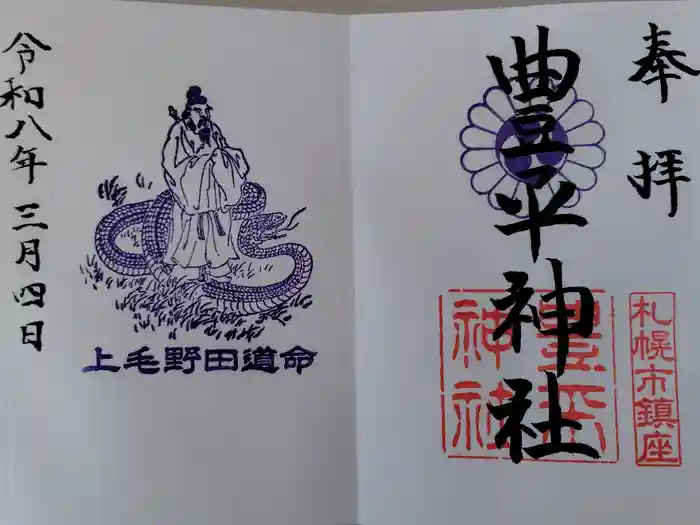 奉拝
豊平神社
豊平
神社
札幌市鎮座
上毛野田道命
令和八年三月四日